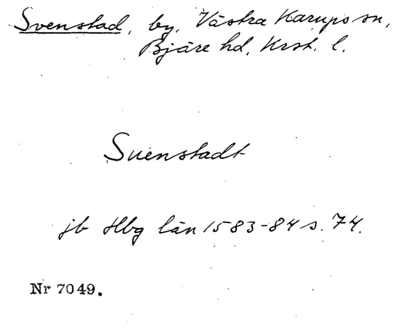 Svenstad, by, Västra Karups sn,
Bjäre hd, Krst. l.
Suenstadt
jb Hbg län 1583-84 s. 74.
Nr 7049.